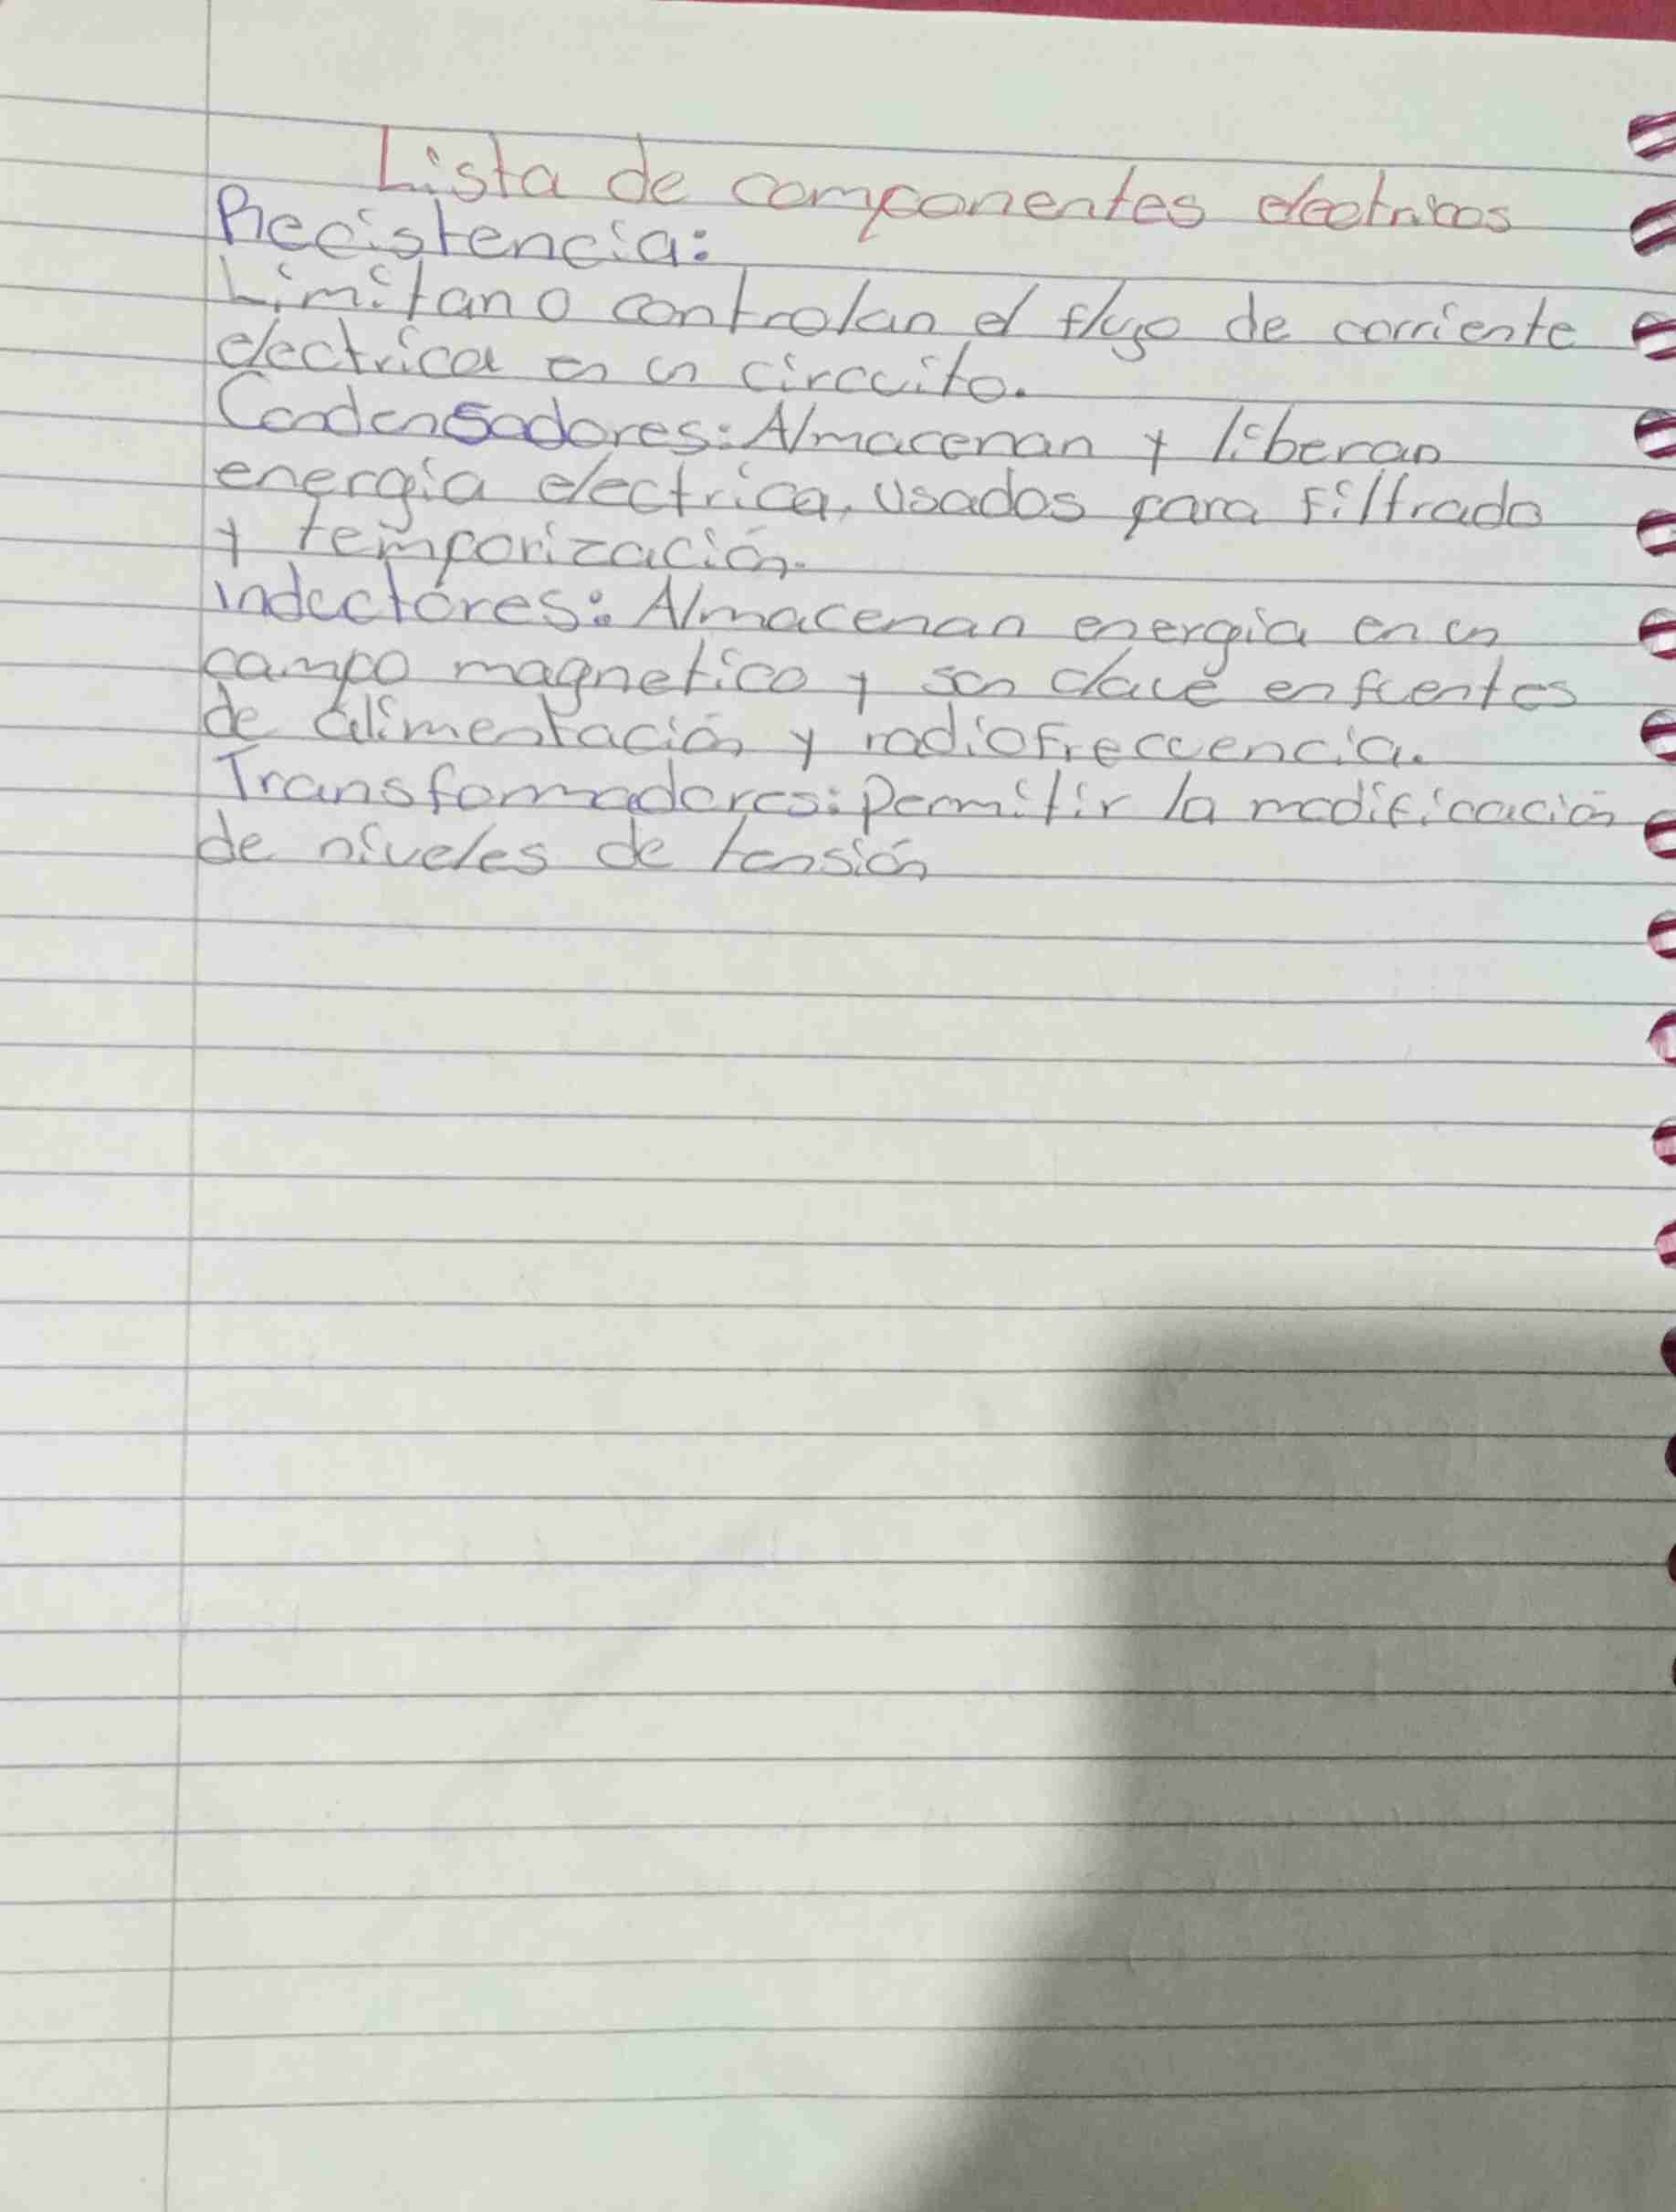 Lista de componentes electricos
Recistencia:
Limitan o controlan el flujo de corriente
electrica en un circuito.
Condensadores: Almacenan y liberan
energia electrica, Usados para Filtrado
y temporización.
inductores: Almacenan energia en un
campo magnetico y son clave en fuentes
de alimentación y radioFrecuencia.
Transformadores: permitir la modificación
de niveles de tensión